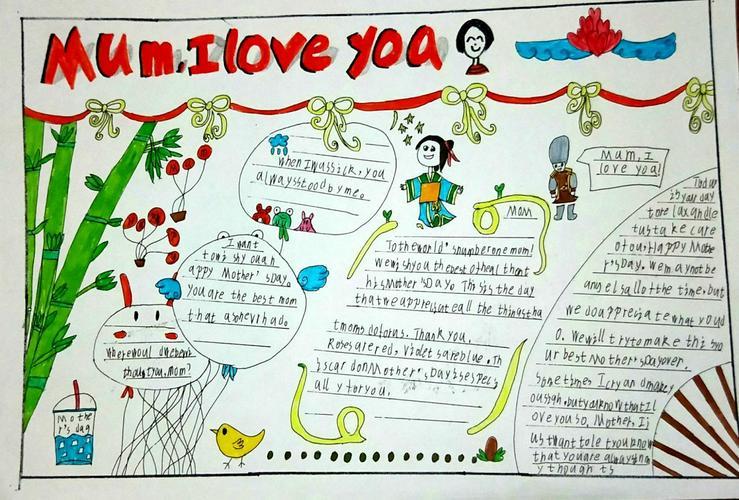 Mum, I love yoa
when I was sick, you
always stood by me.
I want
to wi shy ou ah
appy Mother's Day.
you are the best mom
that a one
where woul
than you, mom?
Mothe
r's day
Mom
To the world's number one mom!
We wish you the best of health on t
his Mother's Day. This is the day
that we appreciate all the things tha
t mom do for us. Thank you.
Roses are red, violets are blue. Th
is car d on Mother's Day is es peci
all y for you.
Mum, I
love yoa!
Today
is your day
to relax and le
t us take care
of ou. Happy Mothe
r's Day. We may not be
an gel s all of the time, but
we do appreciate what you d
o. We will try to make this yo
ur best Mother's Day ever.
Sometimes I cry and make y
ou sigh, but you know that I l
ove you so, Mother, I j
us t want to le t you know
that you are always in m
y though ts